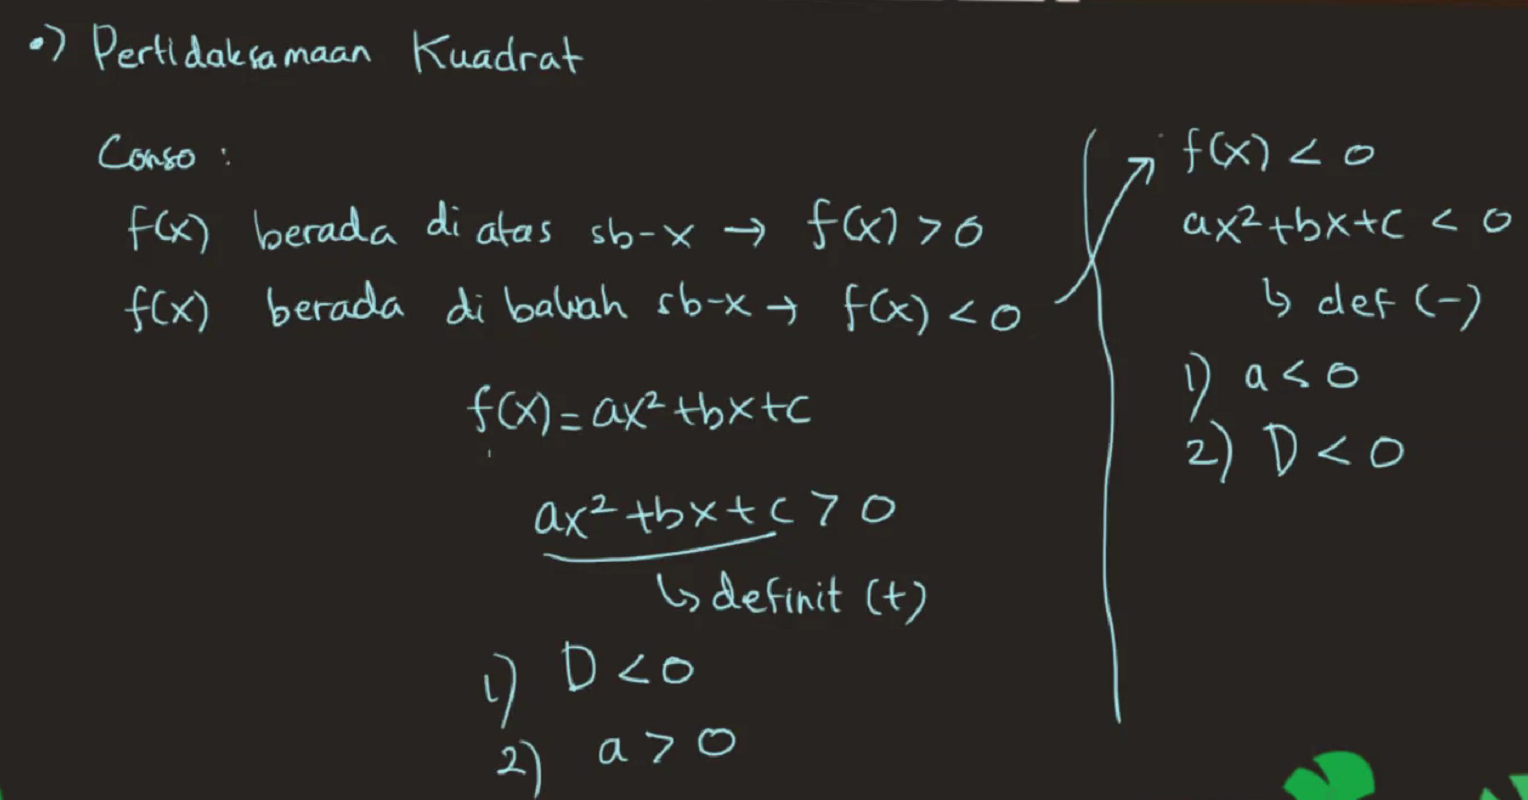 •) Pertidaksamaan Kuadrat
Conso :
f(x) berada di atas sb-x → f(x) > 0
f(x) berada di bawah sb-x → f(x) < 0
f(x) = ax² + bx + c
ax² + bx + c > 0
↳ definit (+)
1) D < 0
2) a > 0
f(x) < 0
ax² + bx + c < 0
↳ def (-)
1) a < 0
2) D < 0